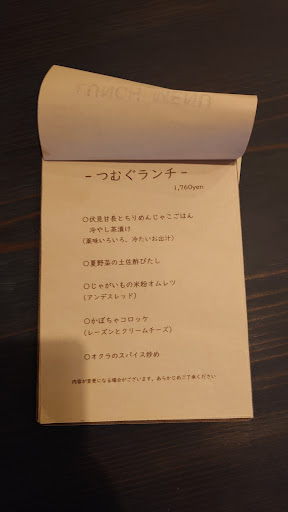 LUNCH MENU
- つむぐランチ -
1,760yen
○伏見甘長とちりめんじゃこごはん
冷やし茶漬け
(薬味いろいろ、冷たいお出汁)
○夏野菜の土佐酢びたし
○じゃがいもの米粉オムレツ
(アンデスレッド)
○かぼちゃコロッケ
(レーズンとクリームチーズ)
○オクラのスパイス炒め
内容が変更になる場合がございます。あらかじめご了承ください